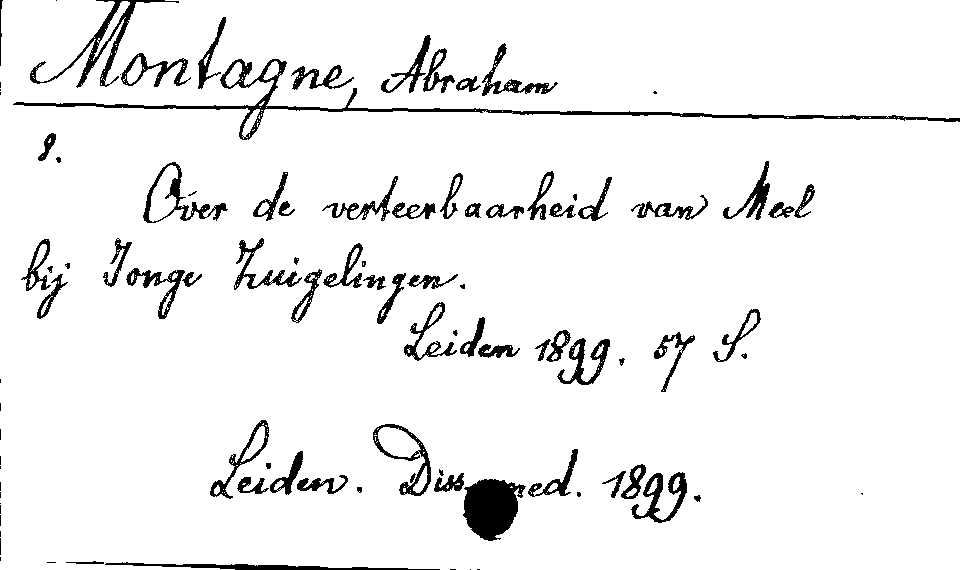 Montagne, Abraham
8.
Over de verteerbaarheid van Meel
bij Jonge Zuigelingen.
Leiden 1899. 57 S.
Leiden. Diss. med. 1899.